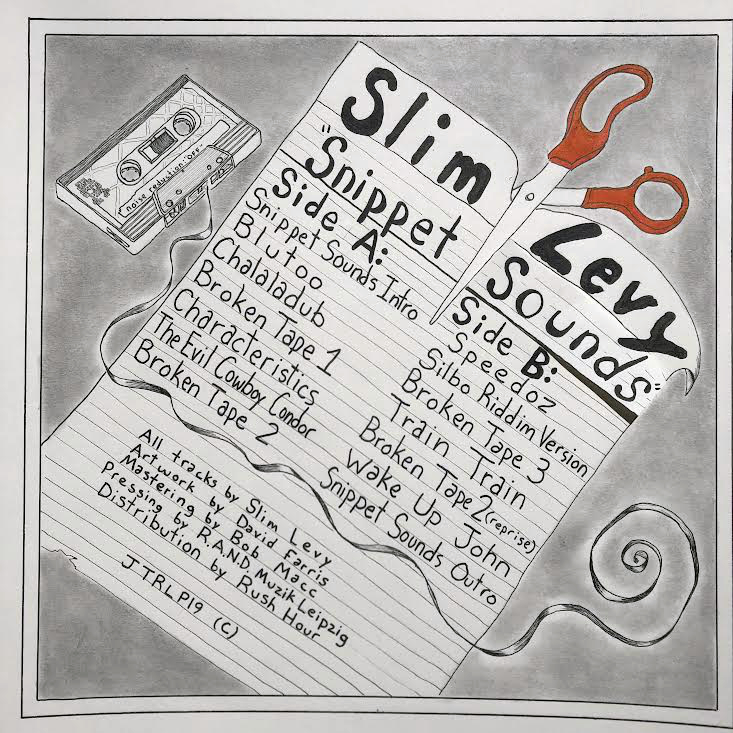 noise reduction: off
Slim Levy
"Snippet Sounds"
Side A:
Snippet Sounds Intro
Blutoo
Chalaladub
Broken Tape 1
Characteristics
The Evil Cowboy Condor
Broken Tape 2
Side B:
Speedoz
Silbo Riddim Version
Broken Tape 3
Train Train
Broken Tape 2 (reprise)
Wake Up John
Snippet Sounds Outro
All tracks by Slim Levy
Artwork by David Farris
Mastering by Bob Macc
Pressing by R.A.N.D. Muzik Leipzig
Distribution by Rush Hour
JTRLP19 (C)